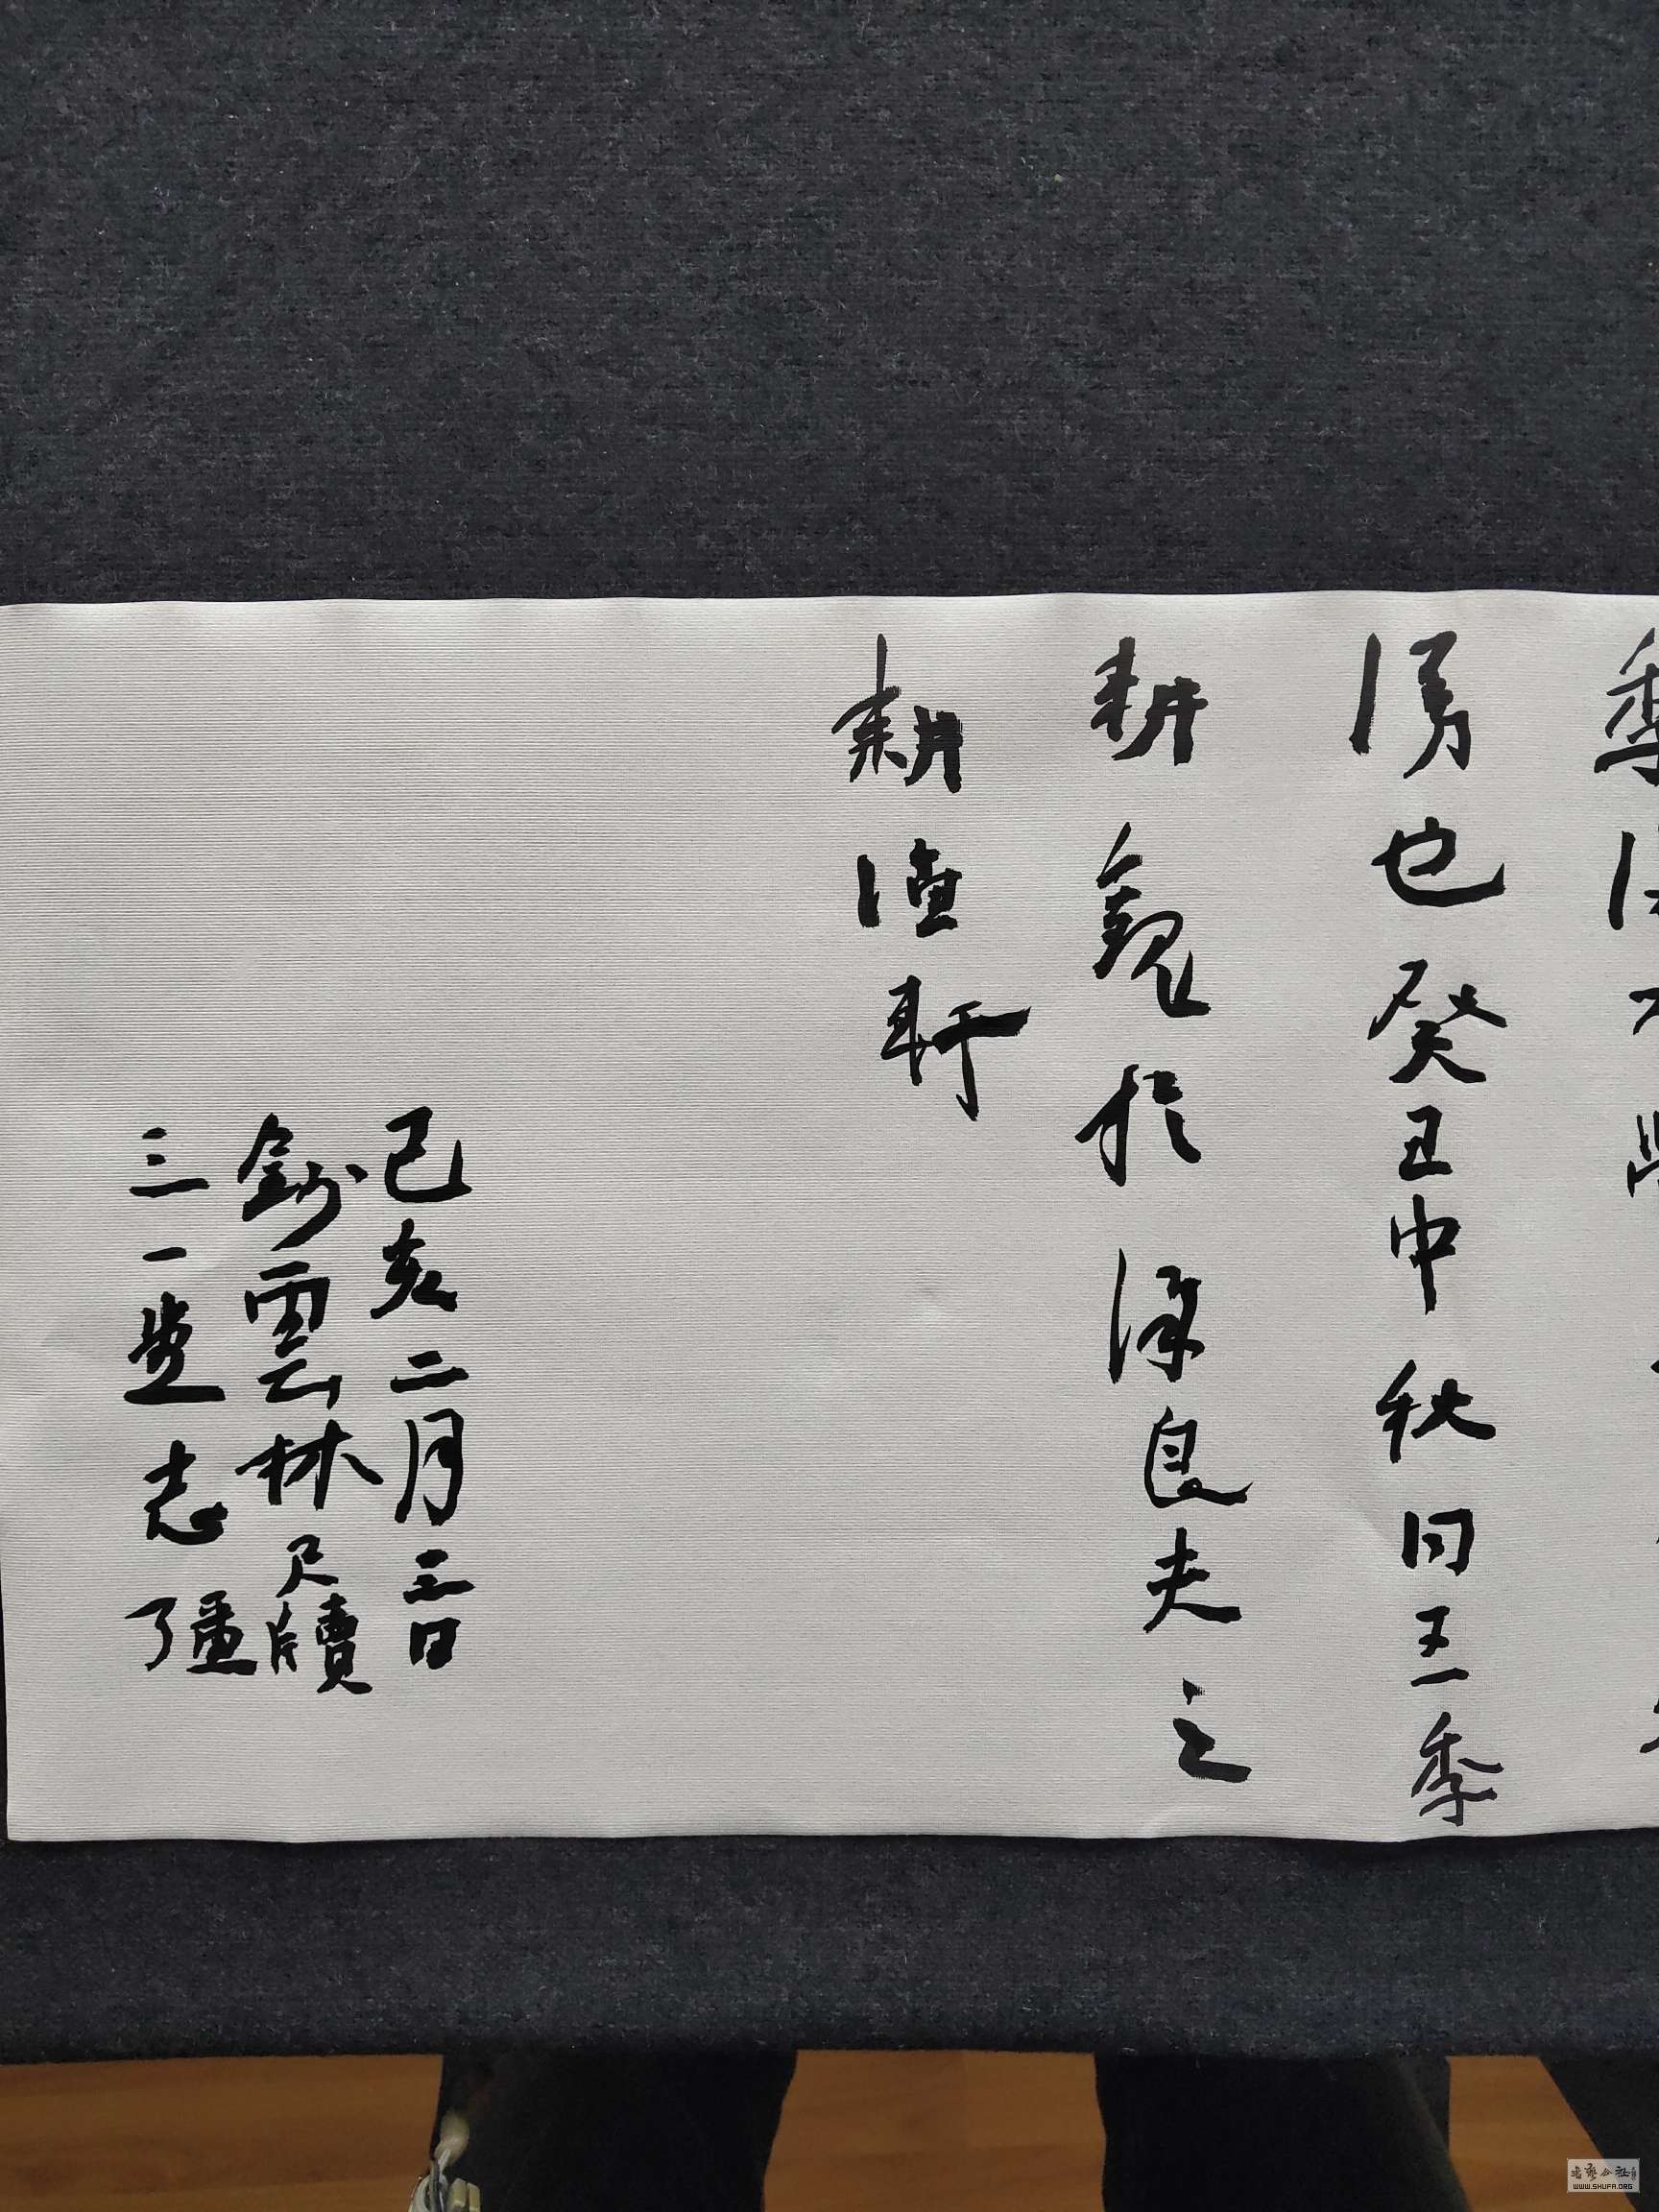 季
得也癸丑中秋同王季
耕觀於徐良夫之
耕漁軒
己亥二月三日
鈔雲林尺牘
三一
志
了
WWW.SHUFA.ORG